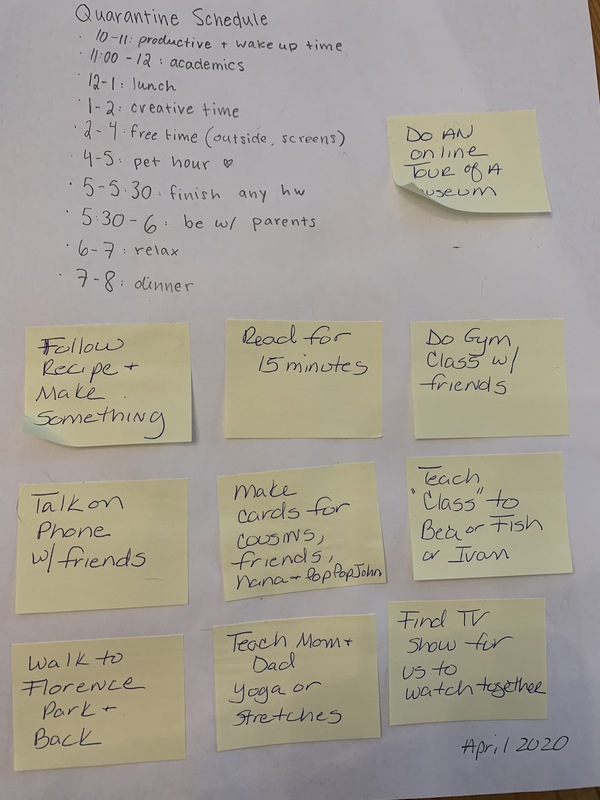 Quarantine Schedule
· 10-11: productive + wake up time
· 11:00 - 12: academics
12-1: lunch
· 1-2: creative time
· 2-4: free time (outside, screens)
· 4-5: pet hour ♡
· 5-5:30: finish any hw
· 5:30-6: be w/ parents
· 6-7: relax
· 7-8: dinner
Do AN
online
Tour of A
useum
Follow
Recipe +
Make
Something
Read for
15 minutes
Do Gym
Class w/
friends
Talk on
Phone
w/ friends
Make
cards for
cousins,
friends,
Nana + PopPop John
Teach
"Class" to
Bea or Fish
or Ivan
Walk to
Florence
Park +
Back
Teach Mom +
Dad
yoga or
stretches
Find TV
Show for
us to
watch together
April 2020